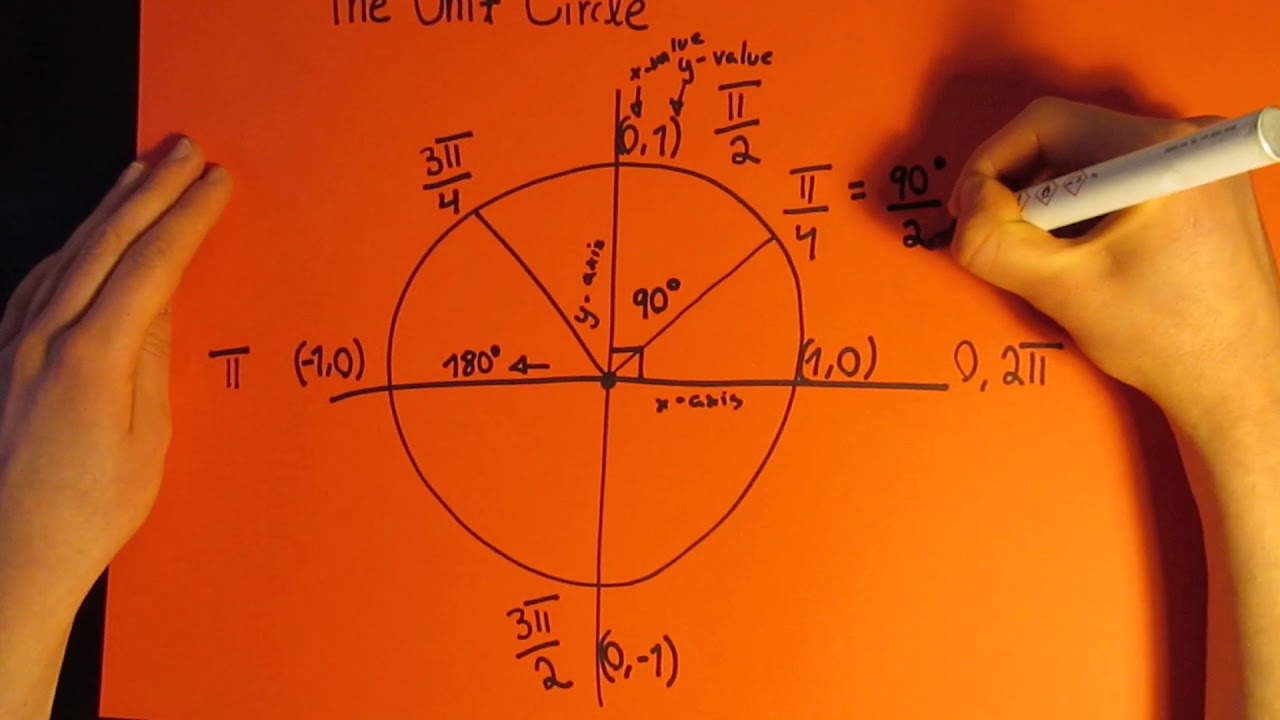 The Unit Circle
x-value
y-value
(0,1)
π/2
3π/4
π/4 = 90°/2
y-axis
90°
π
(-1,0)
180° ←
(1,0)
0, 2π
x-axis
3π/2
(0,-1)